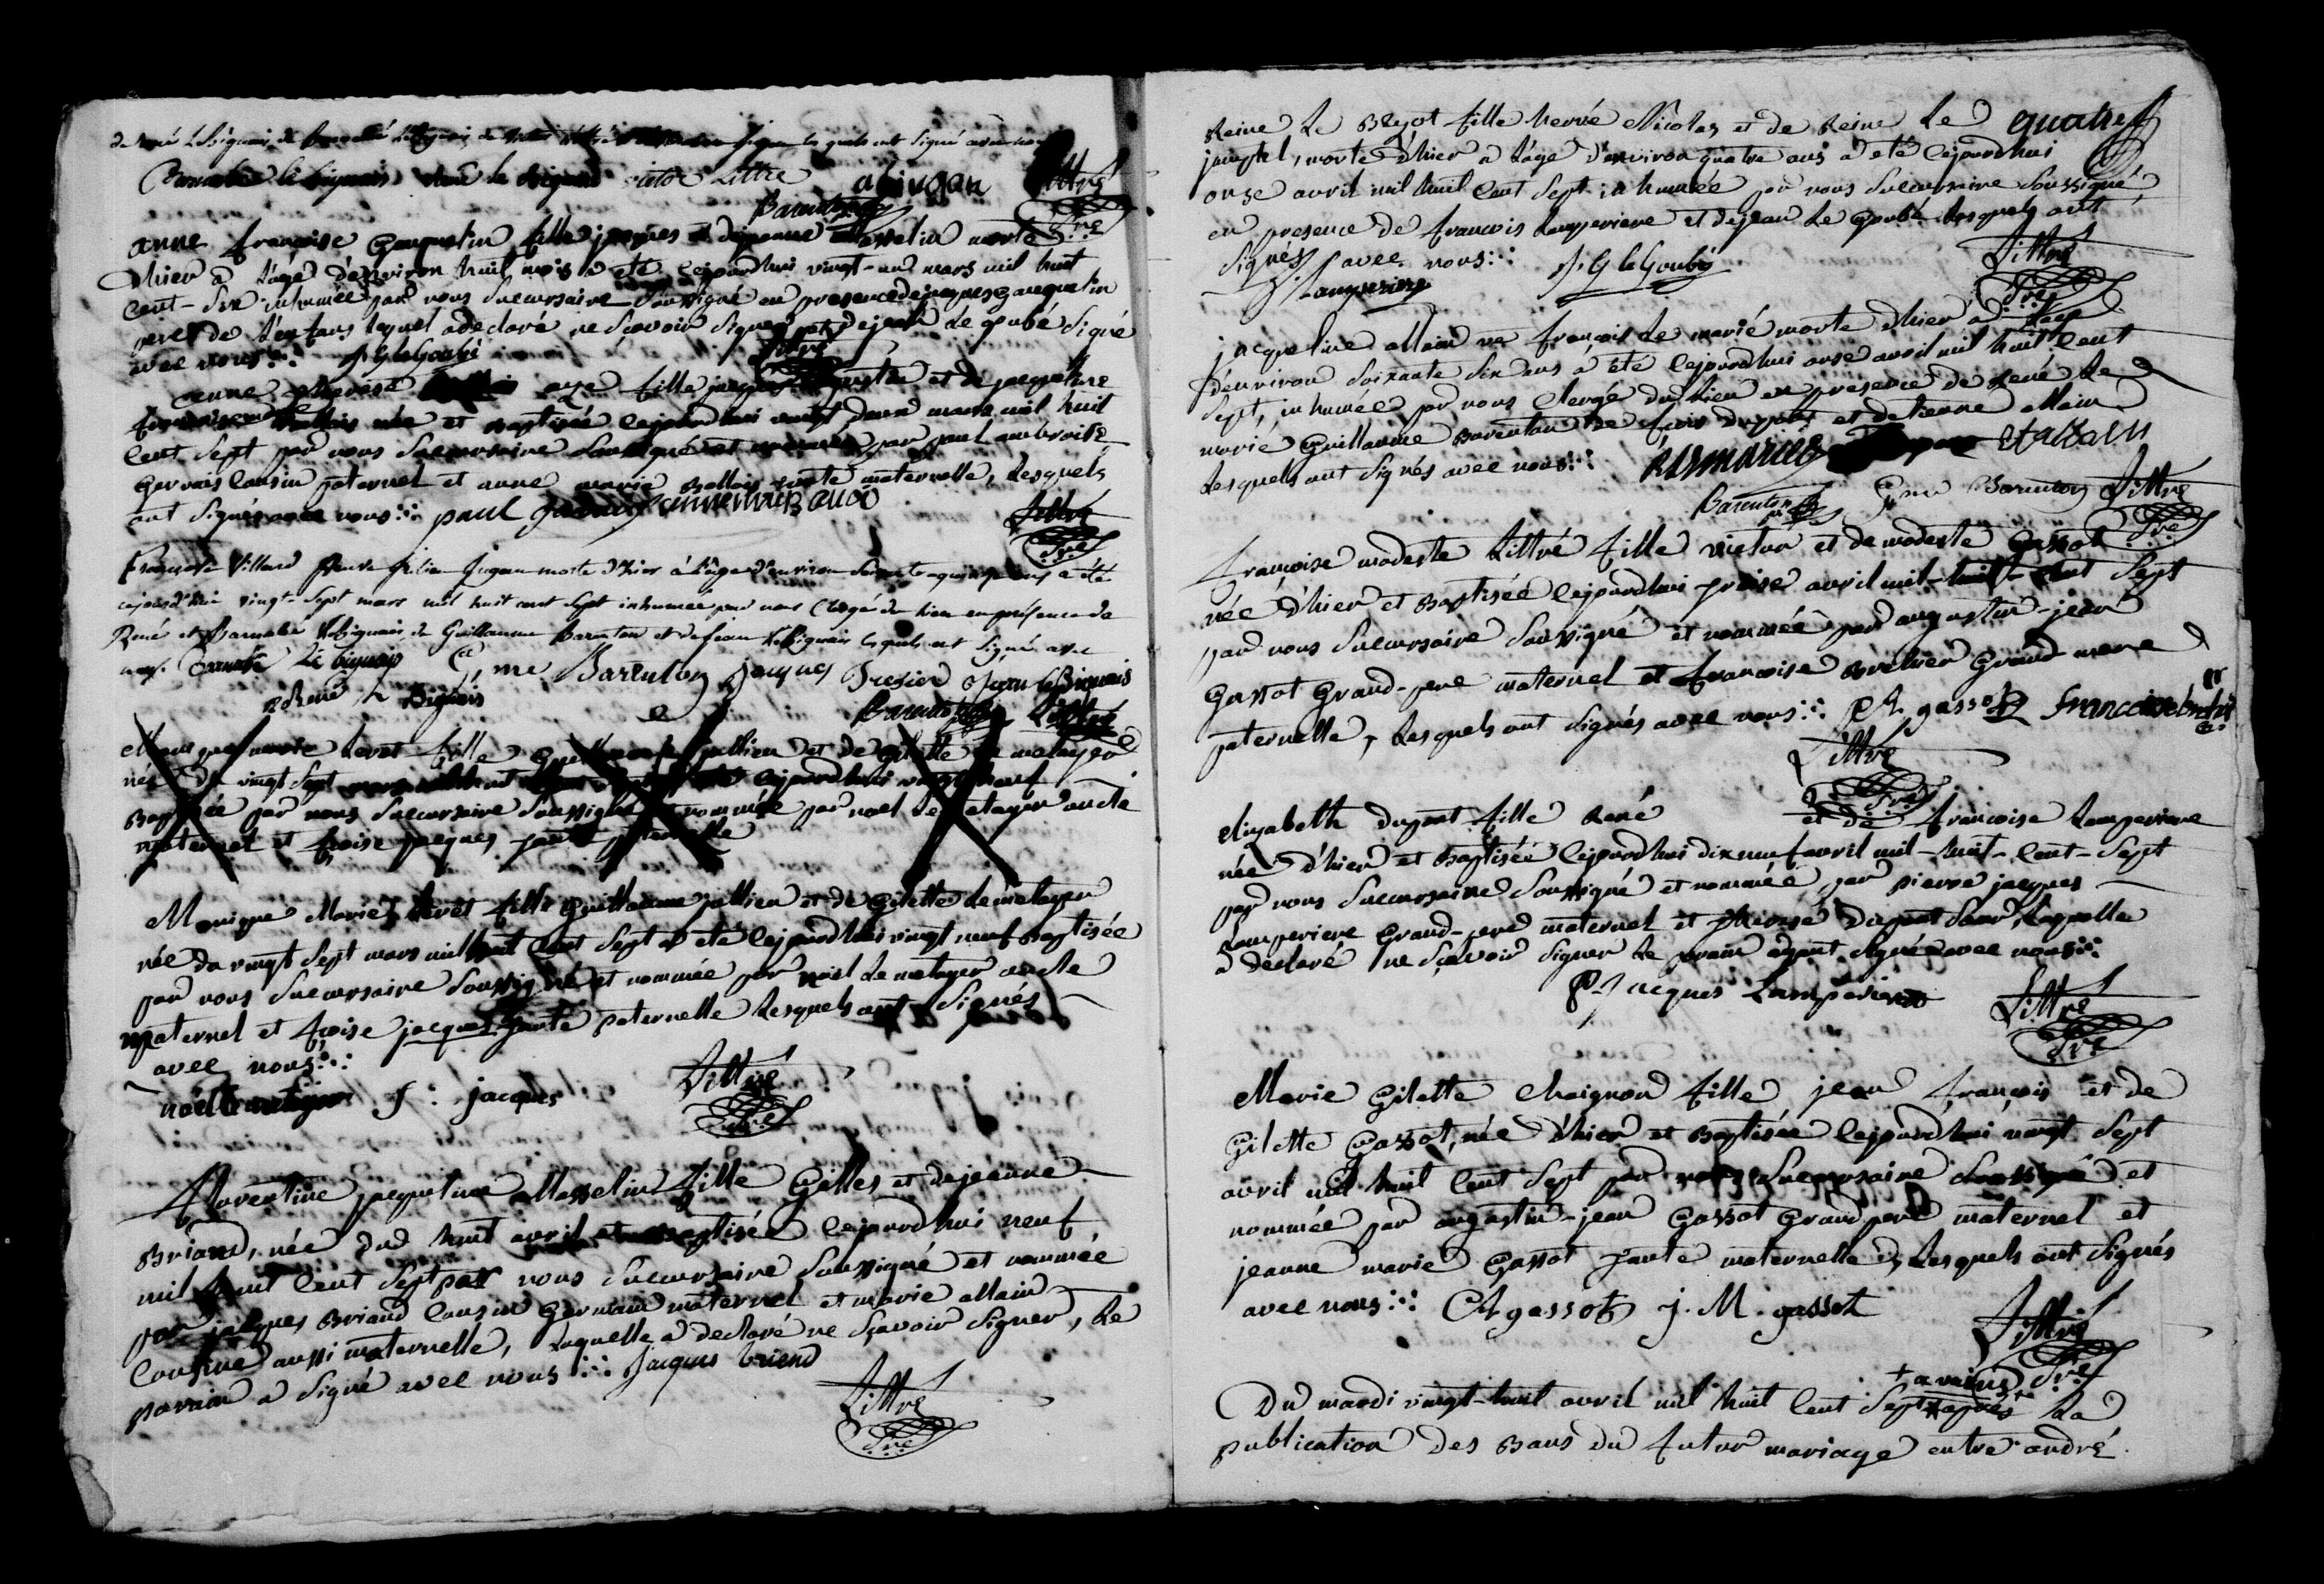 de René Le Bignais, de Barnabé Le Bignais, de Victor Littré lesquels ont signé avec nous
Barnabé le bignais René le bignais victor Littre a bivgan Littré
Barenton
anne françoise Gauquelin fille jacques et de jeanne Masselin morte
d'hier à l'age d'environ huit mois a été cejourdhui vingt-un mars mil huit
cent-six inhumée par nous Succursaire Soussigné en presence de jacques gauquelin
pere de l'enfant lequel a declaré ne sçavoir signer et de jean Le goubé signé
avec nous J G le Goubé Littré Sre
anne therese fille et de jacqueline
françoise Ballois née et baptisée cejourdhui vingt deux mars mil huit
cent sept par nous Succursaire Soussigné et nommée par paul ambroise
Gervais cousin paternel et anne marie Ballois tante maternelle, Lesquels
ont signés avec nous paul Littré
Sre
Françoise Villard veuve julien jugan morte d'hier à l'age d'environ soixante quinze ans a été
cejourd'hui vingt-sept mars mil huit cent sept inhumée par nous Clergé du lieu en présence de
René et Barnabé Le Bignais, de Guillaume Barenton et de jean Le Bignais lesquels ont signé avec
nous. Barnabé Le bignais Gme Barenton jacques jean le Bignais
René le Bignais Barenton Littré
Monique marie Levet fille Guillaume jullien et de Gilette Le metayer
née du vingt sept mars cejourdhui vingt neuf
Baptisée par nous Succursaire Soussigné et nommée par noel Le metayer oncle
maternel et froise jacques tante paternelle
Monique Marie Levet fille Guillaume jullien et de Gilette Le metayer
née du vingt sept mars mil huit cent sept a été cejourdhui vingt neuf Baptisée
par nous Succursaire Soussigné et nommée par noël Le metayer oncle
maternel et froise jacques tante paternelle Lesquels ont Signés
avec nous
noël le metayer f : jacques Littré
Sre
Florentine jacqueline Masselin fille Gilles et de jeanne
Briand, née du huit avril et Baptisée cejourdhui neuf
mil huit cent sept par nous Succursaire Soussigné et nommée
par jacques Briand cousin Germain maternel et marie allain
Cousine aussi maternelle, Laquelle a declaré ne sçavoir signer, Le
parain a signé avec nous Jacques briend
Littré
Sre
Reine Le Bezot fille hervé Nicolas et de Reine Le quatref
jamptel, morte d'hier a l'age d'environ quatre ans a été cejourdhui
onze avril mil huit cent sept inhumée par nous succursaire soussigné
en presence de francois Lamperiere et de jean Le Goubé Lesquels ont
signés avec nous J G le Goubé Littré
f. Lamperiere Sre
jacqueline allain ve françois Le marié morte d'hier a l'age
d'environ soixante six ans a été cejourdhui onze avril mil huit cent
sept, inhumée par nous Clergé du lieu en presence de René Le
marié Guillaume Barenton de frois dupont et detienne allain
Lesquels ont signés avec nous R Lemarié Et allain
Barenton Gme Barenton Littré
Sre
françoise modeste Littré fille victor et de modeste Gassot
née d'hier et Baptisée cejourdhui treise avril mil-huit-cent sept
par nous Succursaire Soussigné et nommée par augustin-jean
Gassot Grand-pere maternel et françoise Brehier Grand mere
paternelle, Lesquels ont signés avec nous A. gassot francoise bréhier
Littré
Sre
elizabeth dupont fille René et de francoise Lamperiere
née d'hier et Baptisée cejourdhui dixneuf avril mil-huit-cent-sept
par nous Succursaire Soussigné et nommée par pierre jacques
Lamperiere Grand-pere maternel et therese dupont Sœur, Laquelle
a declaré ne sçavoir signer Le parain ayant signé avec nous
P. jacques Lamperiere Littré
Sre
Marie Gilette Chaignon fille jean François et de
Gilette Gassot, née d'hier et Baptisée cejourdhui vingt sept
avril mil huit cent sept par nous Succursaire Soussigné et
nommée par augustin-jean Gassot Grand pere maternel et
jeanne marie Gassot tante maternelle, Lesquels ont signés
avec nous A gassot j. M. gassot Littré
Sre
Du mardi vingt-huit avril mil huit cent sept après La
publication des Bans du futur mariage entre andré